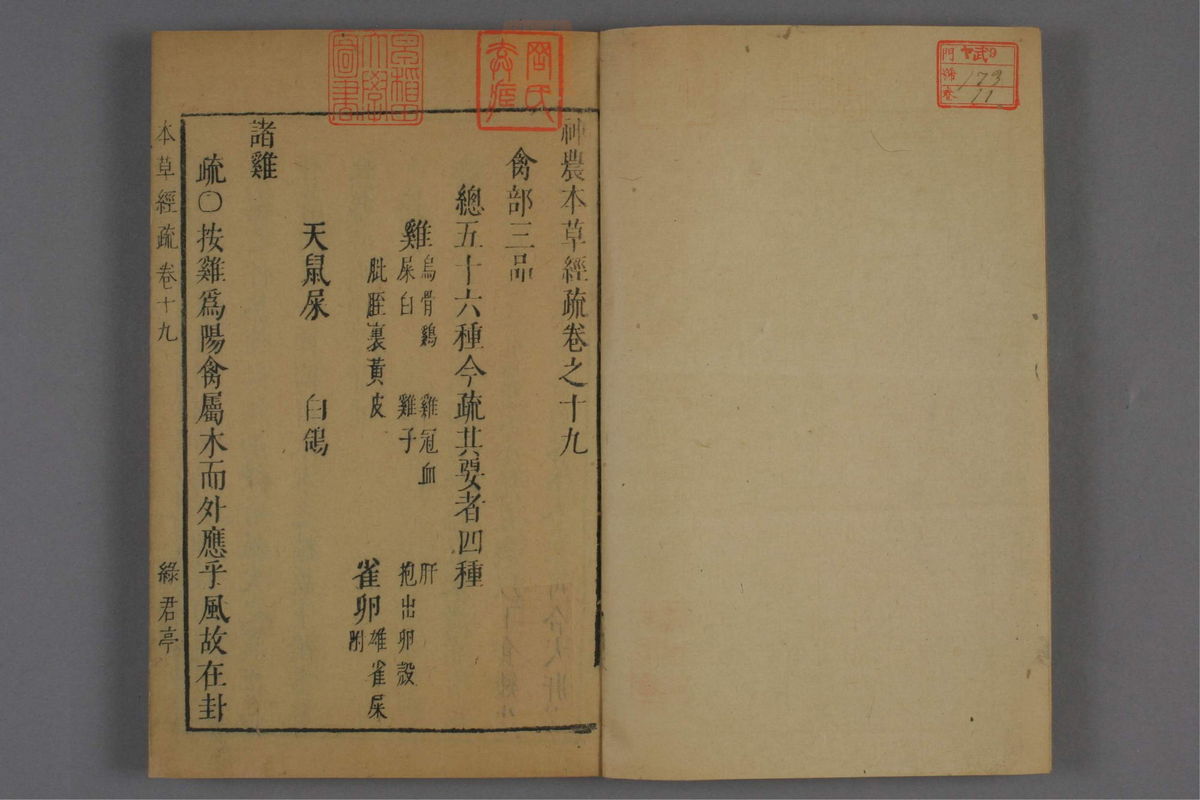 神農本草經疏卷之十九
禽部三品
總五十六種今疏其要者四種
雞 烏骨鷄 雞冠血 肝
屎白 雞子 抱出卵殼
肶胵裏黃皮 雀卵 雄雀屎 附
天鼠屎 白鴿
諸雞
疏○按雞爲陽禽屬木而外應乎風故在卦
本草經疏 卷十九 綠君亭
早稻田大學圖書
門 號 卷
173
11